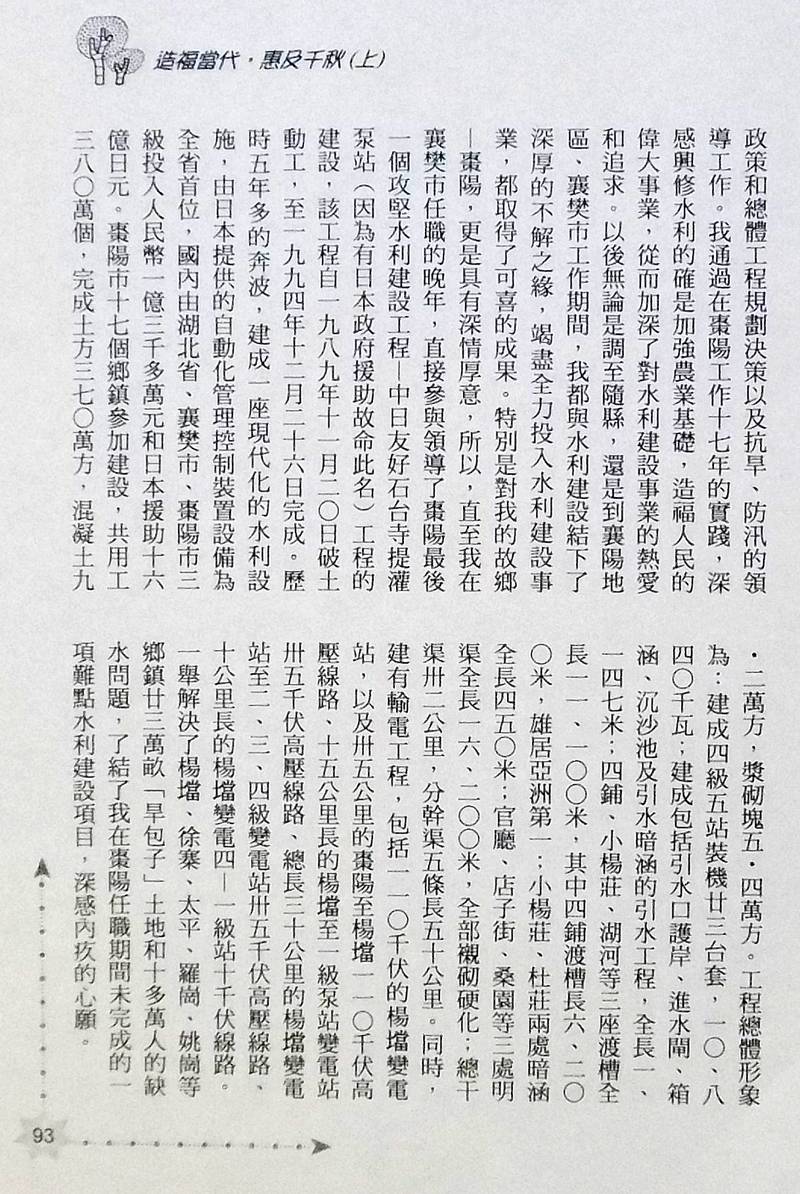 造福當代·惠及千秋(上)
政策和總體工程規劃決策以及抗旱、防汛的領
導工作。我通過在棗陽工作十七年的實踐，深
感興修水利的確是加強農業基礎，造福人民的
偉大事業，從而加深了對水利建設事業的熱愛
和追求。以後無論是調至隨縣，還是到襄陽地
區、襄樊市工作期間，我都與水利建設結下了
深厚的不解之緣，竭盡全力投入水利建設事
業，都取得了可喜的成果。特別是對我的故鄉
—棗陽，更是具有深情厚意，所以，直至我在
襄樊市任職的晚年，直接參與領導了棗陽最後
一個攻堅水利建設工程—中日友好石台寺提灌
泵站（因為有日本政府援助故命此名）工程的
建設，該工程自一九八九年十一月二〇日破土
動工，至一九九四年十二月二十六日完成。歷
時五年多的奔波，建成一座現代化的水利設
施，由日本提供的自動化管理控制裝置設備為
全省首位，國內由湖北省、襄樊市、棗陽市三
級投入人民幣一億三千多萬元和日本援助十六
億日元。棗陽市十七個鄉鎮參加建設，共用工
三八〇萬個，完成土方三七〇萬方，混凝土九
·二萬方，漿砌塊五·四萬方。工程總體形象
為：建成四級五站裝機廿三台套，一〇、八
四〇千瓦；建成包括引水口護岸、進水閘、箱
涵、沉沙池及引水暗涵的引水工程，全長一、
一四七米；四鋪、小楊莊、湖河等三座渡槽全
長一一、一〇〇米，其中四鋪渡槽長六、二〇
〇米，雄居亞洲第一；小楊莊、杜莊兩處暗涵
全長四五〇米；官廳、店子街、桑園等三處明
渠全長一六、二〇〇米，全部襯砌硬化；總干
渠卅二公里，分幹渠五條長五十公里。同時，
建有輸電工程，包括一一〇千伏的楊壋變電
站，以及卅五公里的棗陽至楊壋一一〇千伏高
壓線路、十五公里長的楊壋至一級泵站變電站
卅五千伏高壓線路、總長三十公里的楊壋變電
站至二、三、四級變電站卅五千伏高壓線路、
十公里長的楊壋變電四—一級站十千伏線路。
一舉解決了楊壋、徐寨、太平、羅崗、姚崗等
鄉鎮廿三萬畝「旱包子」土地和十多萬人的缺
水問題，了結了我在棗陽任職期間未完成的一
項難點水利建設項目，深感內疚的心願。
93